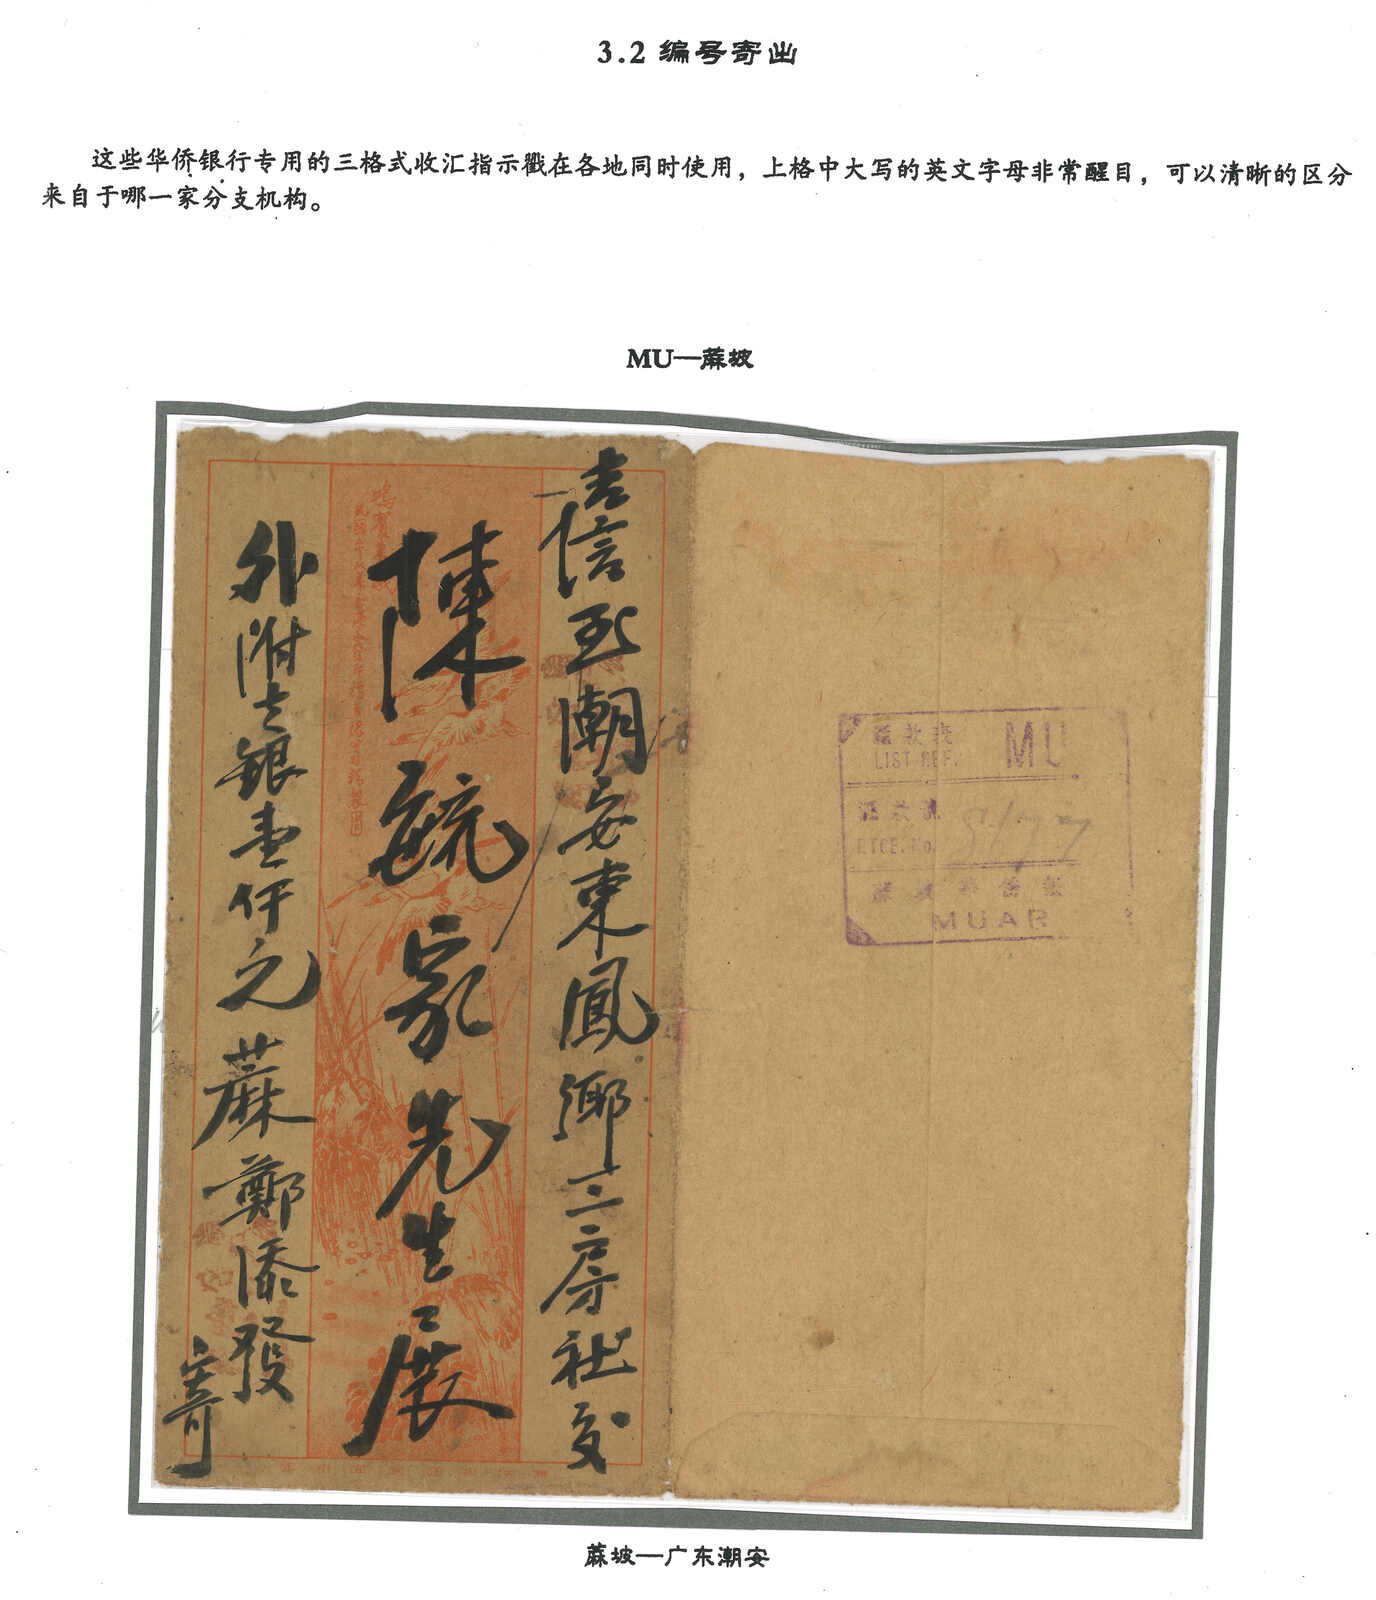 3.2 编号寄出
这些华侨银行专用的三格式收汇指示戳在各地同时使用，上格中大写的英文字母非常醒目，可以清晰的区分
来自于哪一家分支机构。
MU—蔴坡
吉信至潮安東鳳鄉三房社交
陳毓家先生展
外附去銀壹仟元蔴鄭添發
寄
匯款表 MU
LIST REF.
匯款號 9177
RTCE. No.
蔴坡華僑銀
MUAR
蔴坡—广东潮安